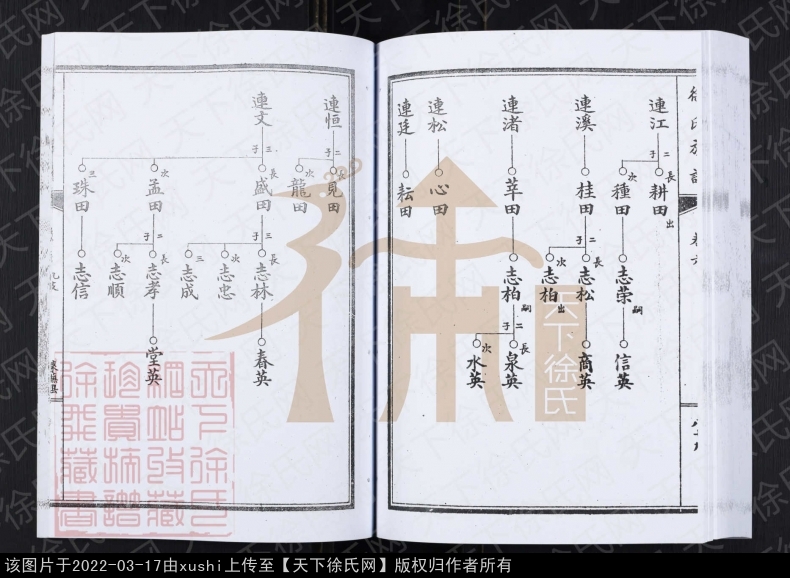 徐氏族譜
卷六
連江
二子
長
耕田
出
次
種田
志荣
嗣
信英
連溪
桂田
二子
長
志松
商英
次
志柏
出
連渚
莘田
志柏
嗣
二子
長
泉英
次
水英
連松
心田
連廷
耘田
連恒
二子
長
見田
次
龍田
連文
三子
長
盛田
三子
長
志林
春英
次
志忠
三
志成
次
孟田
二子
長
志孝
堂英
次
志順
三
珠田
志信
天下徐氏
天下徐氏网
该图片于2022-03-17由xushi上传至【天下徐氏网】版权归作者所有